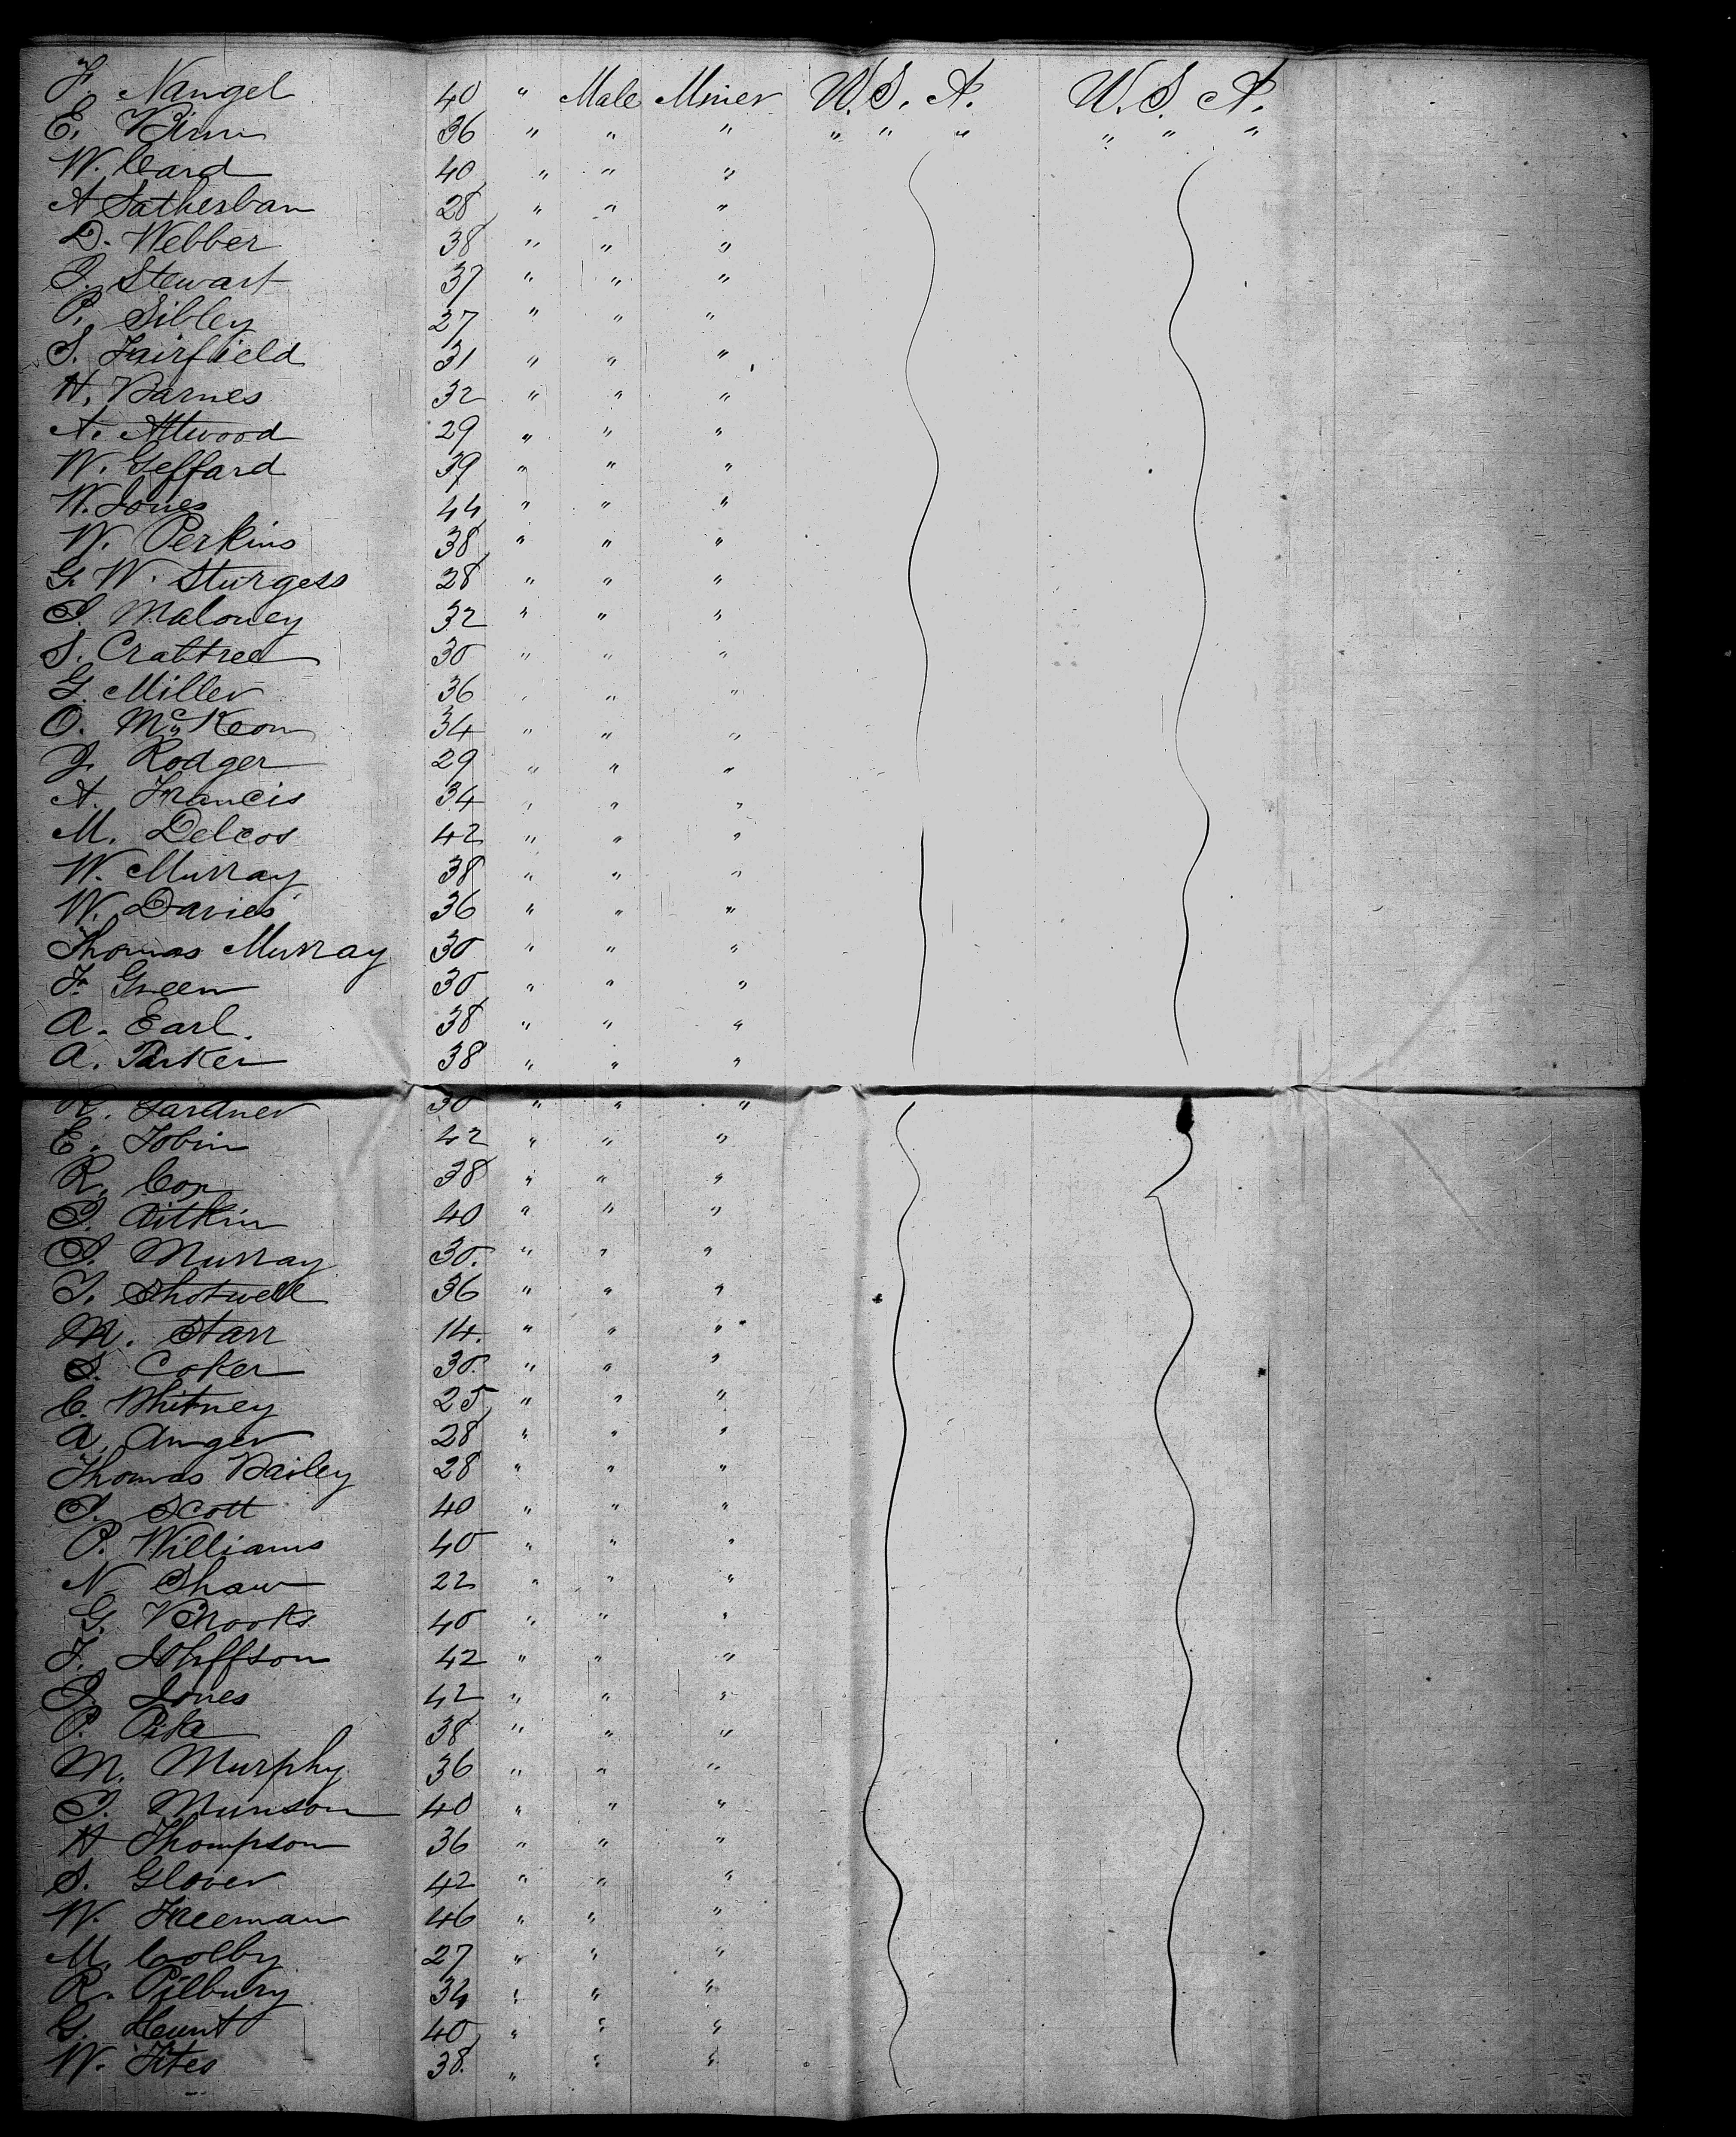 F. Nangel 40 " Male Miner U.S. A. U.S. A.
E. Binn 36 " " " " " " " " "
W. Card 40 " " "
A Satherban 28 " " "
D. Webber 38 " " "
J. Stewart 37 " " "
P. Sibley 27 " " "
S. Fairfield 31 " " "
H. Barnes 32 " " "
A. Attwood 29 " " "
W. Geffard 39 " " "
W. Jones 44 " " "
W. Perkins 38 " " "
G. W. Sturgess 28 " " "
J. Maloney 32 " " "
S. Crabtree 30 " " "
G. Miller 36 " " "
O. McKeon 34 " " "
J. Rodger 29 " " "
A. Francis 34 " " "
M. Delcos 42 " " "
W. Murray 38 " " "
W. Davies 36 " " "
Thomas Murray 30 " " "
F. Green 30 " " "
A. Earl. 38 " " "
A. Parker 38 " " "
R. Gardner 30 " " "
E. Tobin 42 " " "
R. Cox 38 " " "
J. Aitkin 40 " " "
J. Murray 30. " " "
J. Shotwell 36 " " "
M. Starr 14. " " "
S. Coker 30. " " "
C. Whitney 25 " " "
A. Anger 28 " " "
Thomas Bailey 28 " " "
J. Scott 40 " " "
P. Williams 40 " " "
N Shaw 22 " " "
G. Brooks 40 " " "
F. 42 " " "
J. Jones 42 " " "
P. Pike 38 " " "
M. Murphy 36 " " "
J. Munson 40 " " "
H Thompson 36 " " "
S. Glover 42 " " "
W. Freeman 46 " " "
M. Colby 27 " " "
R. Pilbury 34 " " "
G. Hunt 40 " " "
W. Fites 38. " " "